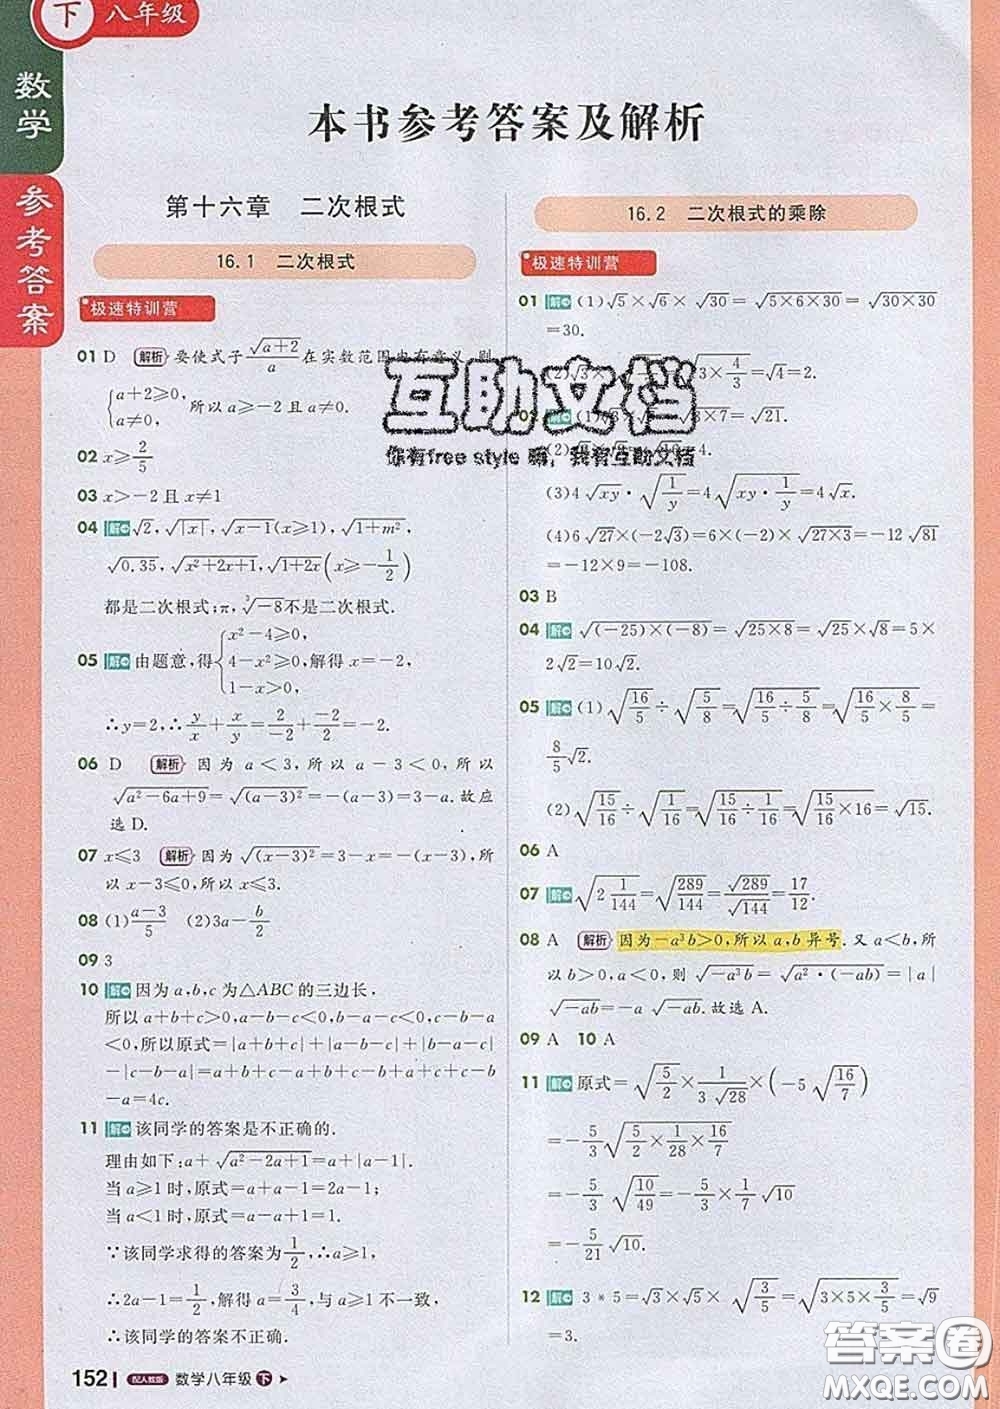 下 八年级
数学
参考答案
本书参考答案及解析
第十六章 二次根式
16.1 二次根式
极速特训营
01 D 解析 要使式子√(a+2)/a在实数范围内有意义,则
{a+2≥0, a≠0, 所以a≥-2且a≠0.
02 x≥2/5
03 x>-2且x≠1
04 解 √2,√|x|,√(x-1)(x≥1),√(1+m²),
√0.35,√(x²+2x+1),√(1+2x)(x≥-1/2)
都是二次根式;π,³√-8不是二次根式.
05 解 由题意,得{x²-4≥0, 4-x²≥0, 1-x>0, 解得x=-2,
∴y=2,∴y/x+x/y=2/-2+-2/2=-2.
06 D 解析 因为a<3,所以a-3<0,所以
√(a²-6a+9)=√(a-3)²=-(a-3)=3-a.故应
选D.
07 x≤3 解析 因为√(x-3)²=3-x=-(x-3),所
以x-3≤0,所以x≤3.
08 (1)(a-3)/5 (2)3a-b/2
09 3
10 解 因为a,b,c为△ABC的三边长,
所以a+b+c>0,a-b-c<0,b-a-c<0,c-b-a
<0,所以原式=|a+b+c|+|a-b-c|+|b-a-c|
-|c-b-a|=a+b+c+b+c-a+a+c-b+c-
b-a=4c.
11 解 该同学的答案是不正确的.
理由如下:a+√(a²-2a+1)=a+|a-1|.
当a≥1时,原式=a+a-1=2a-1;
当a<1时,原式=a-a+1=1.
∵该同学求得的答案为1/2,∴a≥1,
∴2a-1=1/2,解得a=3/4,与a≥1不一致,
∴该同学的答案不正确.
152 配人教版 数学八年级 下
16.2 二次根式的乘除
极速特训营
01 解 (1)√5×√6×√30=√(5×6×30)=√(30×30)
=30.
(2)√3×
×3×4/3)=√4=2.
02 解 (1)
3×7=√21.
(3)4√xy·√(1/y)=4√(xy·1/y)=4√x.
(4)6√27×(-2√3)=6×(-2)×√(27×3)=-12√81
=-12×9=-108.
03 B
04 解 √((-25)×(-8))=√(25×8)=√25×√8=5×
2√2=10√2.
05 解 (1)√(16/5)÷√(5/8)=√(16/5÷5/8)=√(16/5×8/5)=
8/5√2.
(2)√(15/16)÷√(1/16)=√(15/16÷1/16)=√(15/16×16)=√15.
06 A
07 解 √(2 1/144)=√(289/144)=√289/√144=17/12.
08 A 解析 因为-a³b>0,所以a,b异号.又a<b,所
以b>0,a<0,则√(-a³b)=√(a²·(-ab))=|a|
√(-ab)=-a√(-ab).故选A.
09 A 10 A
11 解 原式=√(5/2)×1/(3√28)×(-5√(16/7))
=-5/3√(5/2×1/28×16/7)
=-5/3√(10/49)=-5/3×1/7√10
=-5/21√10.
12 解 3*5=√3×√5×√(3/5)=√(3×5×3/5)=√9
=3.
互助文档
你有free style 嗨, 我有互助文档
答案圈
MXQE.COM